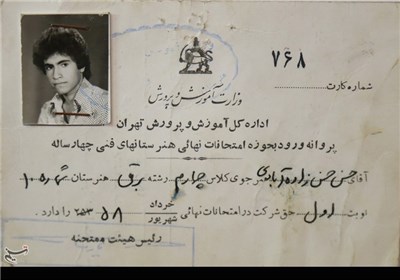 ۷۶۸
شماره کارت
وزارت آموزش و پرورش
اداره کل آموزش و پرورش تهران
پروانه ورود بحوزه امتحانات نهائی هنرستانهای فنی چهارساله
آقای حسن حسن زاده آبادی هنرجوی کلاس چهارم رشته برق هنرستان شماره ۱۰
نوبت اول حق شرکت در امتحانات نهائی خرداد شهریور ۲۵۳۵۸ را دارد.
رئیس هیئت ممتحنه